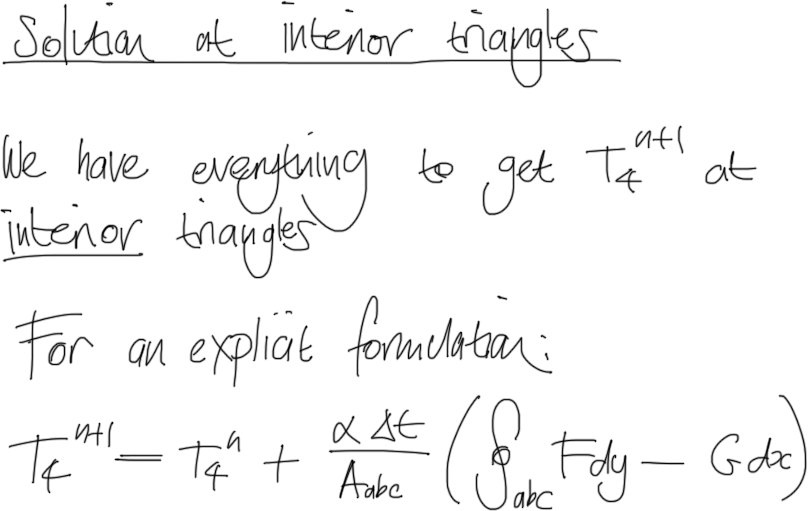 Solution at interior triangles
We have everything to get T₄ⁿ⁺¹ at
interior triangles
For an explicit formulation:
T₄ⁿ⁺¹ = T₄ⁿ + α Δt / A_abc (∮_abc Fdy − Gdx)